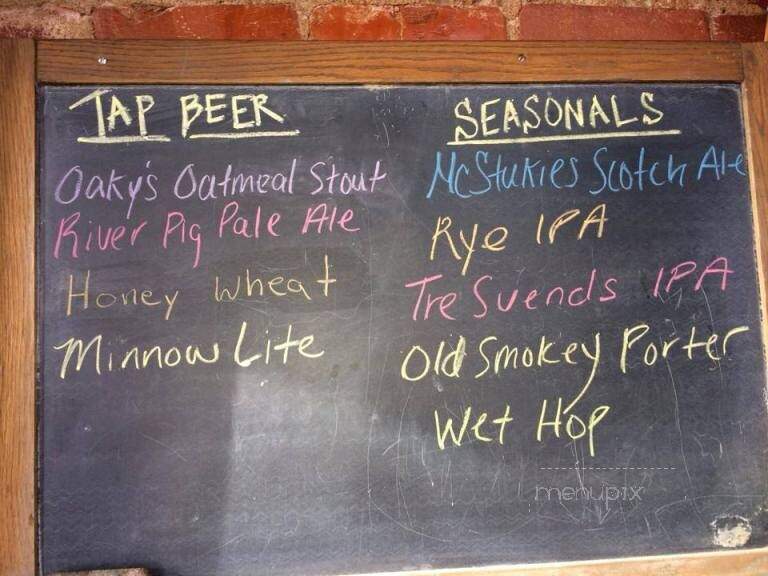 TAP BEER
Oaky's Oatmeal Stout
River Pig Pale Ale
Honey Wheat
Minnow Lite
SEASONALS
McStukies Scotch Ale
Rye IPA
Tre Svends IPA
Old Smokey Porter
Wet Hop
menupix